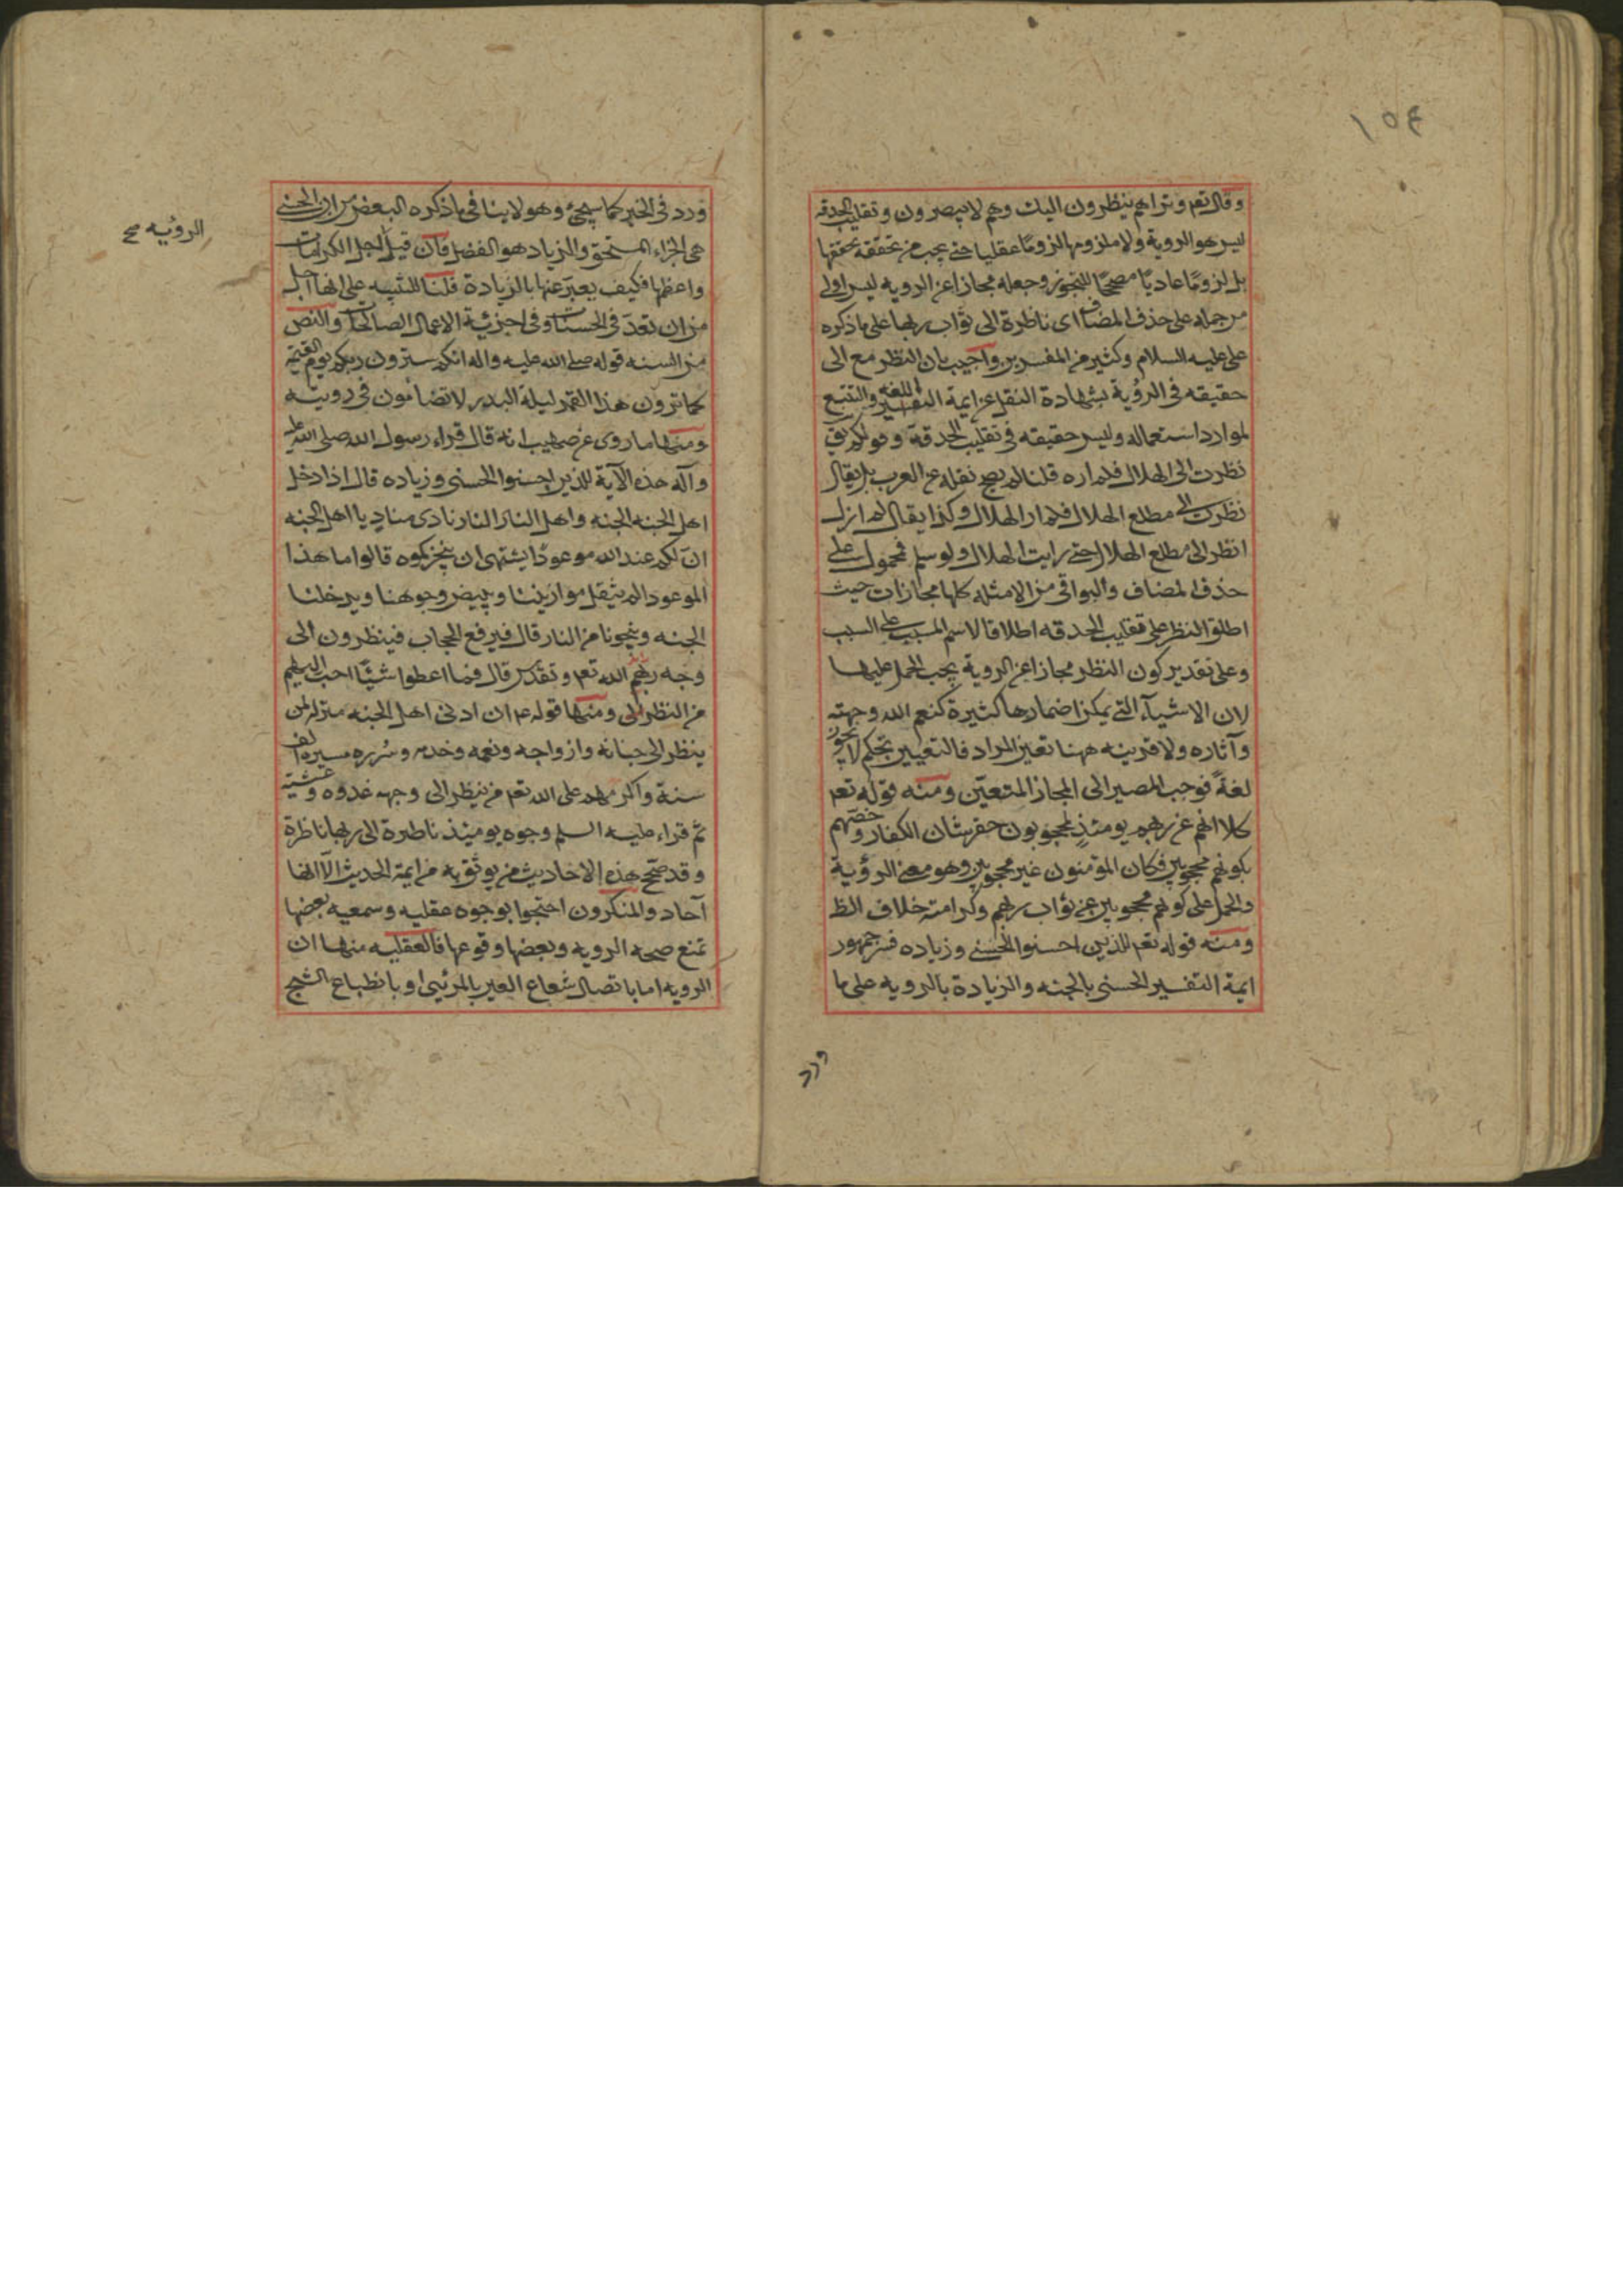 ١٥٤
وقال تعم وتراهم ينظرون اليك وهم لا يبصرون وتقليب الحدقه
ليس هو الروية ولا ملزومها لزومًا عقليا حتى يجب من تحققه تحققها
بل لزومًا عاديًا مصححًا للتجوز وجعله مجازا عن الرويه ليس اولى
من حمله على حذف المضاف اى ناظرة الى ثواب ربها على ما ذكره
على عليه السلام وكثير من المفسرين واجيب بان النظر مع الى
حقيقه فى الرؤية بشهادة النقل عن ايمة اللغه والتفسير والتتبع
لموارد استعماله وليس حقيقه فى تقليب الحدقة وقولكم
نظرت الى الهلال فلم اره قلنا لم يصح نقله عن العرب بل يقال
نظرت الى مطلع الهلال فلم ار الهلال وكذا يقال لم ازل
انظر الى مطلع الهلال حتى رايت الهلال ولو سلم فمحمول على
حذف المضاف والبواقى من الامثله كلها مجازات حيث
اطلق النظر على تقليب الحدقه اطلاقا لاسم المسبب على السبب
وعلى تقدير كون النظر مجازا عن الروية يجب الحمل عليها
لان الاشيآء التى يمكن اضمارها كثيرة كنعم الله وجهته
وآثاره ولا قرينه ههنا تعين المراد فالتعيين تحكم لا يجوز
لغةً فوجب المصير الى المجاز المتعيّن ومنه قوله تعم
كلا انهم عن ربهم يومئذٍ لمحجوبون حقر شان الكفار وخصّهم
بكونهم محجوبين فكان المؤمنون غير محجوبين وهو معنى الرؤية
والحمل على كونهم محجوبين عن ثواب ربهم وكرامته خلاف الظ
ومنه قوله تعم للذين احسنوا الحسنى وزياده فسر جمهور
ايمة التفسير الحسنى بالجنه والزيادة بالرويه على ما
ورد
ورد فى الخبر كما سيجئ وهو لا ينافى ما ذكره البعض من ان الحسنى
هى الجزاء المستحق والزياد هو الفضل فان قيل اجل الكرامات
واعظمها فكيف يعبّر عنها بالزيادة قلنا للتنبيه على انها اجل
من ان تعدّ فى الحسنات وفى اجزئية الاعمال الصالحات والنص
من السنه قوله صلى الله عليه واله انكم سترون ربكم يوم القيمة
كما ترون هذا القمر ليلة البدر لا تضامون فى رويته
ومنها ما روى عن صهيب انه قال قراء رسول الله صلى الله عليه
وآله هذه الآية للذين احسنوا الحسنى وزياده قال اذا دخل
اهل الجنه الجنه واهل النار النار نادى منادٍ يا اهل الجنه
انّ لكم عند الله موعودًا يشتهى ان ينجزكموه قالوا ما هذا
الموعود الم يثقل موازيننا ويبيض وجوهنا ويدخلنا
الجنه وينجونا من النار قال فيرفع الحجاب فينظرون الى
وجه ربهم الله تعم وتقدس قال فما اعطوا شيئًا احب اليهم
من النظر الى ومنها قوله عم ان ادنى اهل الجنه منزلة لمن
ينظر الى جنانه وازواجه ونعمه وخدمه وسُرره مسيرة الف
سنة واكرمهم على الله تعم من ينظر الى وجهه غدوه وعشية
ثم قراء عليه السلم وجوه يومئذ ناظرة الى ربها ناظرة
وقد صحّح هذه الاحاديث من يوثق به من ايمة الحديث الّا انها
آحاد والمنكرون احتجوا بوجوه عقليه وسمعيه بعضها
تمنع صحه الرويه وبعضها وقوعها فالعقليه منها ان
الرويه اما باتصال شعاع العين بالمرئيى او بانطباع الشبح
الرؤيه صح